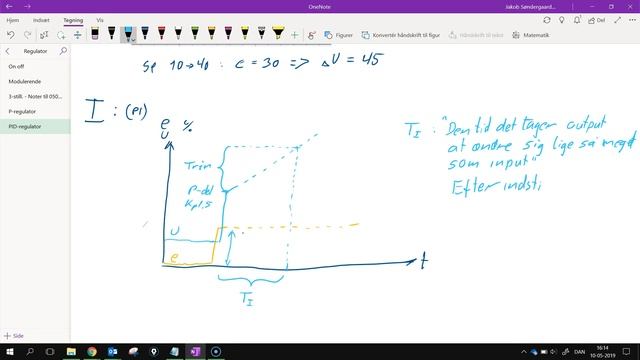 OneNote
Jakob Søndergaard...
Hjem
Tegning
Visning
Del
Figurer
Konvertér håndskrift til figur
Håndskrift til tekst
Matematik
Regulator
On off
Modulerende
3-still. - Noter til 050...
P-regulator
PID-regulator
Side
SP 10→40 : e = 30 => ΔU = 45
I : (PI)
e %
U
Trin
P-del
Kp 1,5
U
e
t
TI
TI : "Den tid det tager output
at ændre sig lige så meget
som input"
Efter indsti
DAN
16:14
10-05-2019